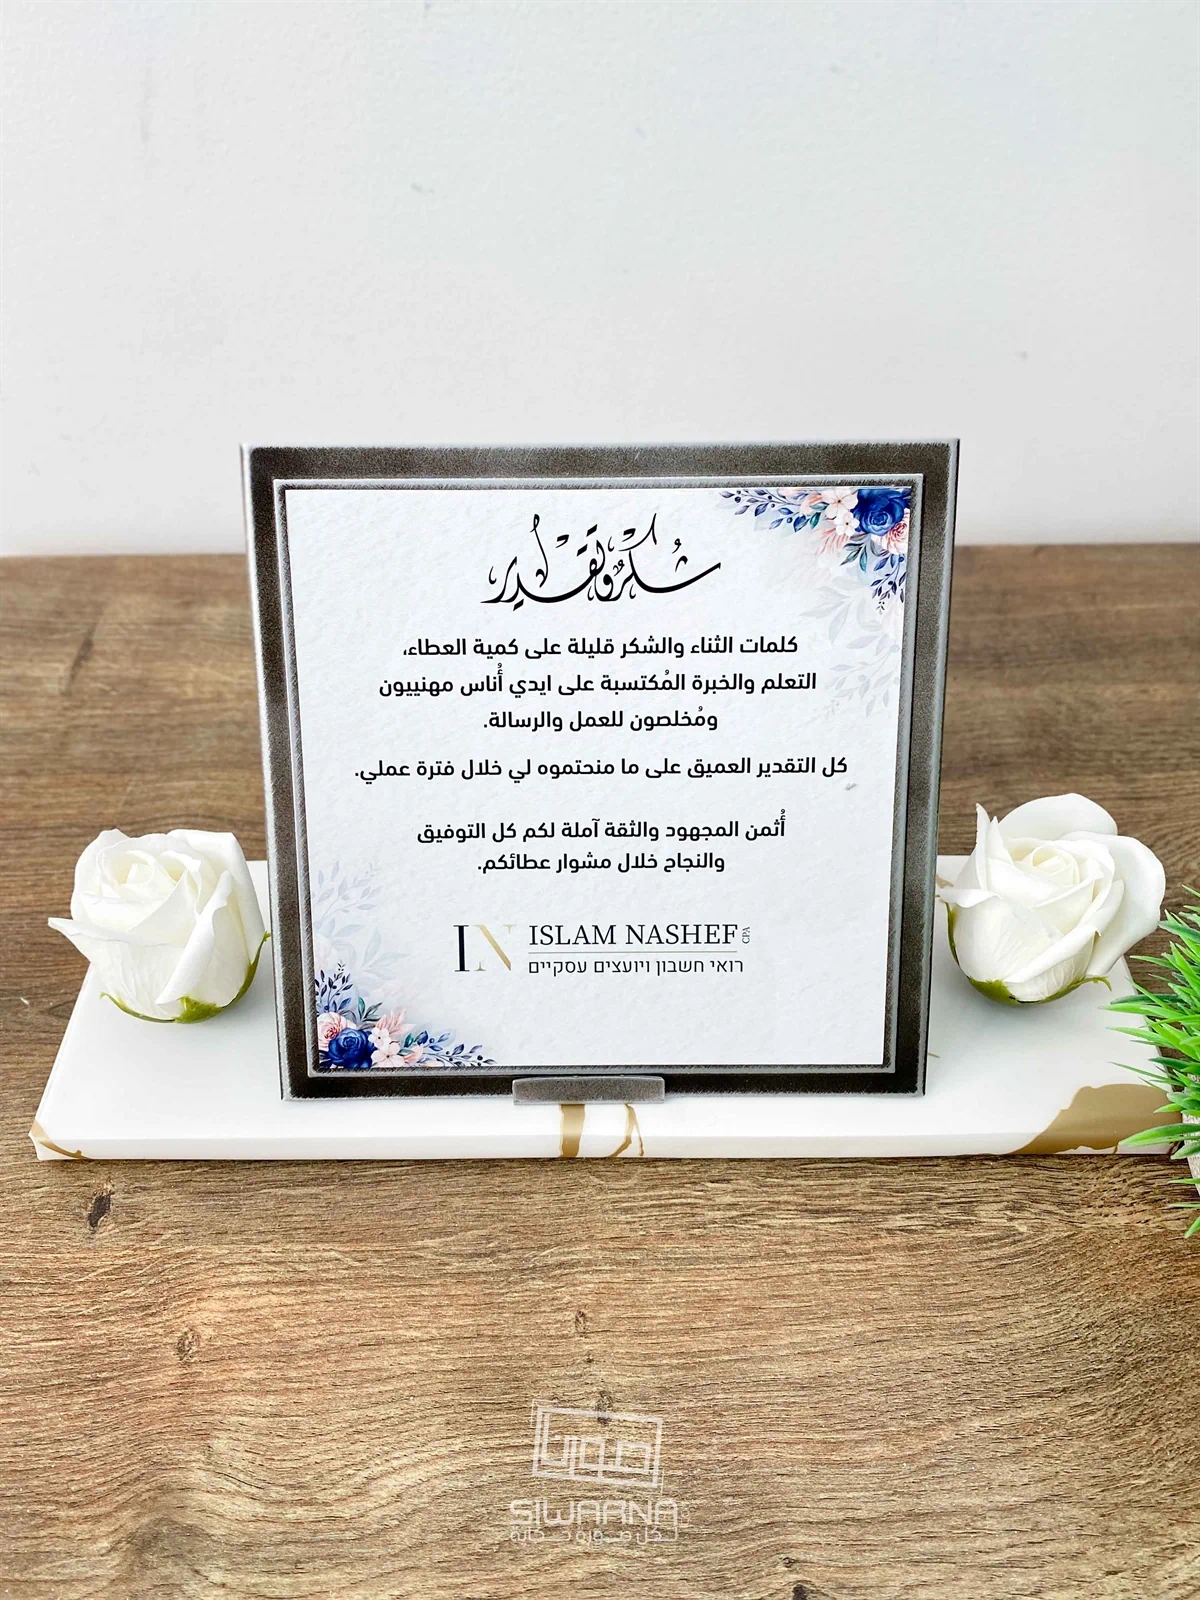 شكر وتقدير
كلمات الثناء والشكر قليلة على كمية العطاء،
التعلم والخبرة المُكتسبة على ايدي أُناس مهنييون
ومُخلصون للعمل والرسالة.
كل التقدير العميق على ما منحتموه لي خلال فترة عملي.
أُثمن المجهود والثقة آملة لكم كل التوفيق
والنجاح خلال مشوار عطائكم.
IN ISLAM NASHEF CPA
רואי חשבון ויועצים עסקיים
صورنا
SIWARNA
لكل صورة حكاية